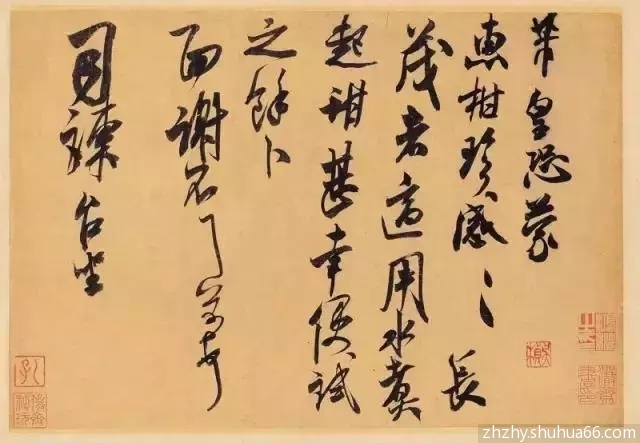 芾皇恐蒙
惠柑珍感〻長
茂者適用水煮
起甜甚幸便試
之餘卜
面謝不一一芾頓首
司諫台坐
zhzhyshuhua66.com